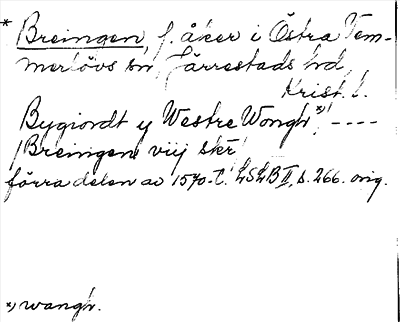 * Breingen, f. åker i Östra Tem-
merlövs sn, Järrestads hd,
Krist. l.
Bygiordt y Westre Wongh *)', ----
/Breingen viij skr
förra delen av 1570-t. LSLB II, s. 266. orig.
*) wangh.